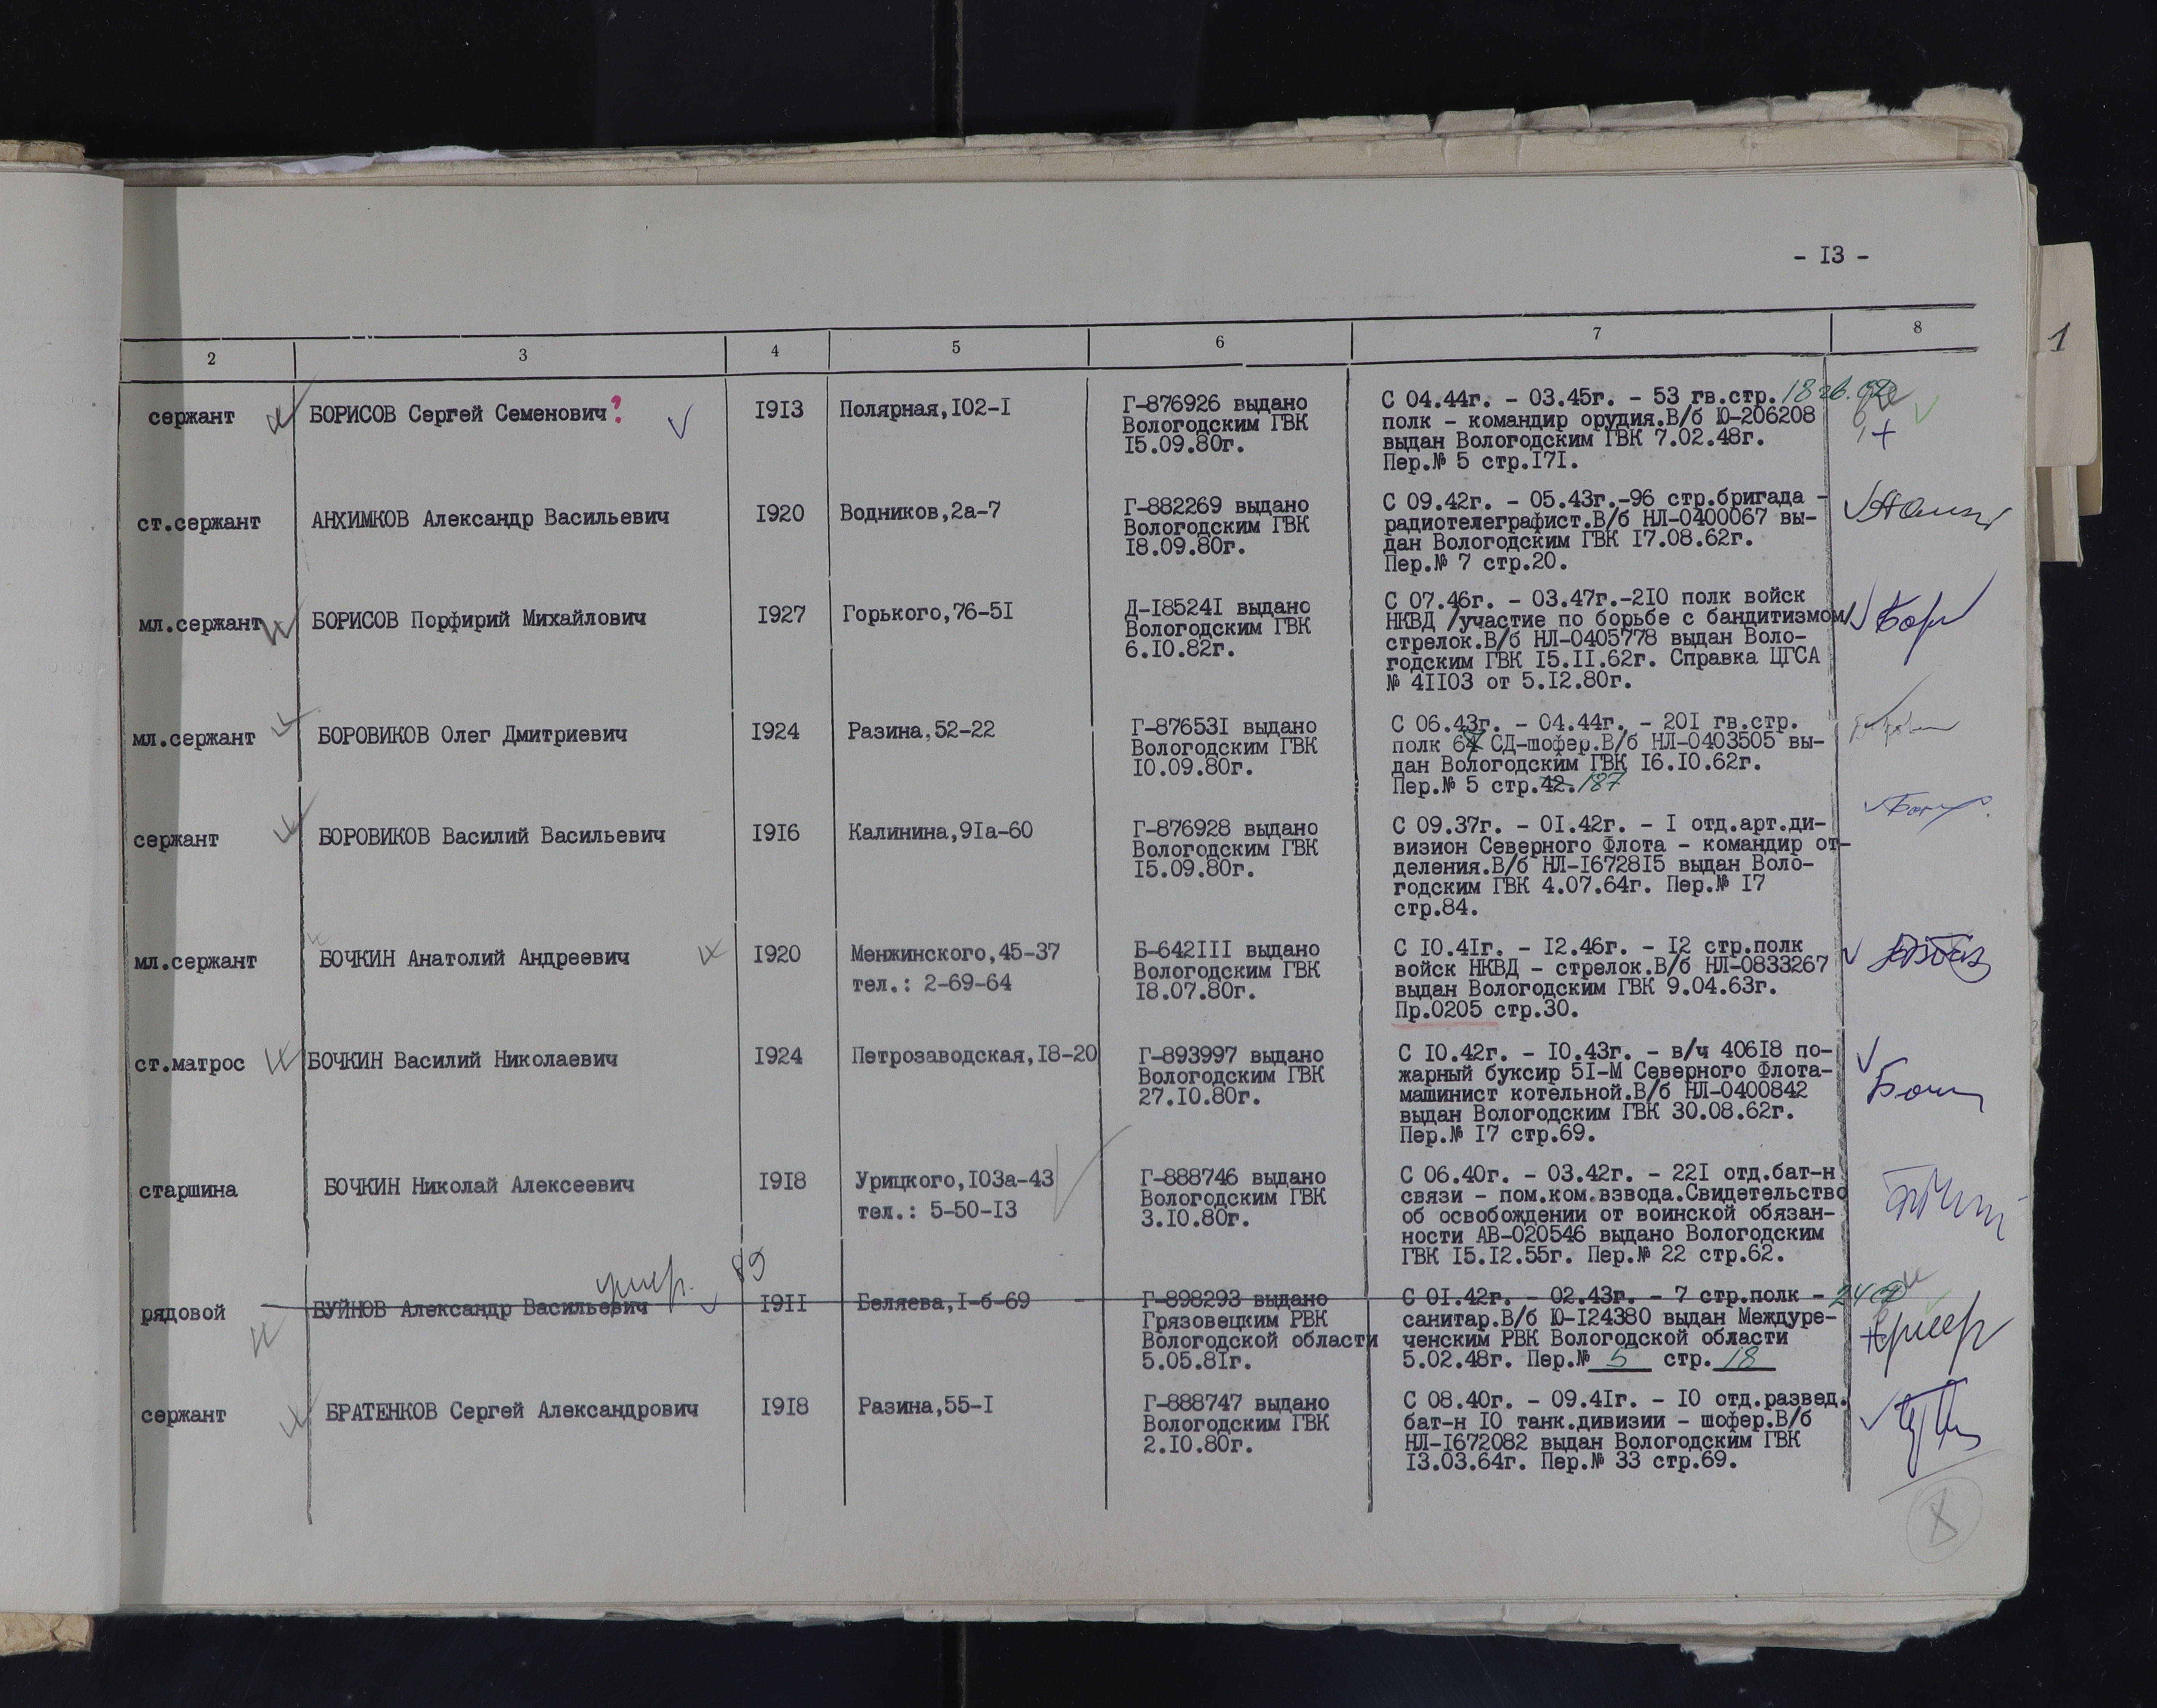 - I3 -
2 3 4 5 6 7 8
1
сержант БОРИСОВ Сергей Семенович? I9I3 Полярная,I02-I Г-876926 выдано С 04.44г. - 03.45г. - 53 гв.стр.
Вологодским ГВК полк - командир орудия.В/б Ю-206208
I5.09.80г. выдан Вологодским ГВК 7.02.48г.
Пер.№ 5 стр.I7I.
ст.сержант АНХИМКОВ Александр Васильевич I920 Водников,2а-7 Г-882269 выдано С 09.42г. - 05.43г.-96 стр.бригада -
Вологодским ГВК радиотелеграфист.В/б НЛ-0400067 вы-
I8.09.80г. дан Вологодским ГВК I7.08.62г.
Пер.№ 7 стр.20.
мл.сержант БОРИСОВ Порфирий Михайлович I927 Горького,76-5I Д-I8524I выдано С 07.46г. - 03.47г.-2I0 полк войск
Вологодским ГВК НКВД /участие по борьбе с бандитизмом/
6.I0.82г. стрелок.В/б НЛ-0405778 выдан Воло-
годским ГВК I5.II.62г. Справка ЦГСА
№ 4II03 от 5.I2.80г.
мл.сержант БОРОВИКОВ Олег Дмитриевич I924 Разина,52-22 Г-87653I выдано С 06.43г. - 04.44г. - 20I гв.стр.
Вологодским ГВК полк 64 СД-шофер.В/б НЛ-0403505 вы-
I0.09.80г. дан Вологодским ГВК I6.I0.62г.
Пер.№ 5 стр.42. 187
сержант БОРОВИКОВ Василий Васильевич I9I6 Калинина,9Iа-60 Г-876928 выдано С 09.37г. - 0I.42г. - I отд.арт.ди-
Вологодским ГВК визион Северного Флота - командир от-
I5.09.80г. деления.В/б НЛ-I6728I5 выдан Воло-
годским ГВК 4.07.64г. Пер.№ I7
стр.84.
мл.сержант БОЧКИН Анатолий Андреевич I920 Менжинского,45-37 Б-642III выдано С I0.4Iг. - I2.46г. - I2 стр.полк
тел.: 2-69-64 Вологодским ГВК войск НКВД - стрелок.В/б НЛ-0833267
I8.07.80г. выдан Вологодским ГВК 9.04.63г.
Пр.0205 стр.30.
ст.матрос БОЧКИН Василий Николаевич I924 Петрозаводская,I8-20 Г-893997 выдано С I0.42г. - I0.43г. - в/ч 406I8 по-
Вологодским ГВК жарный буксир 5I-М Северного Флота-
27.I0.80г. машинист котельной.В/б НЛ-0400842
выдан Вологодским ГВК 30.08.62г.
Пер.№ I7 стр.69.
старшина БОЧКИН Николай Алексеевич I9I8 Урицкого,I03а-43 Г-888746 выдано С 06.40г. - 03.42г. - 22I отд.бат-н
тел.: 5-50-I3 Вологодским ГВК связи - пом.ком.взвода.Свидетельство
3.I0.80г. об освобождении от воинской обязан-
ности АВ-020546 выдано Вологодским
ГВК I5.I2.55г. Пер.№ 22 стр.62.
умер. 89
рядовой БУЙНОВ Александр Васильевич I9II Беляева,I-б-69 Г-898293 выдано С 0I.42г. - 02.43г. - 7 стр.полк -
Грязовецким РВК санитар.В/б Ю-I24380 выдан Междуре-
Вологодской области ченским РВК Вологодской области умер
5.05.8Iг. 5.02.48г. Пер.№ 5 стр. 18
сержант БРАТЕНКОВ Сергей Александрович I9I8 Разина,55-I Г-888747 выдано С 08.40г. - 09.4Iг. - I0 отд.развед.
Вологодским ГВК бат-н I0 танк.дивизии - шофер.В/б
2.I0.80г. НЛ-I672082 выдан Вологодским ГВК
I3.03.64г. Пер.№ 33 стр.69.
8